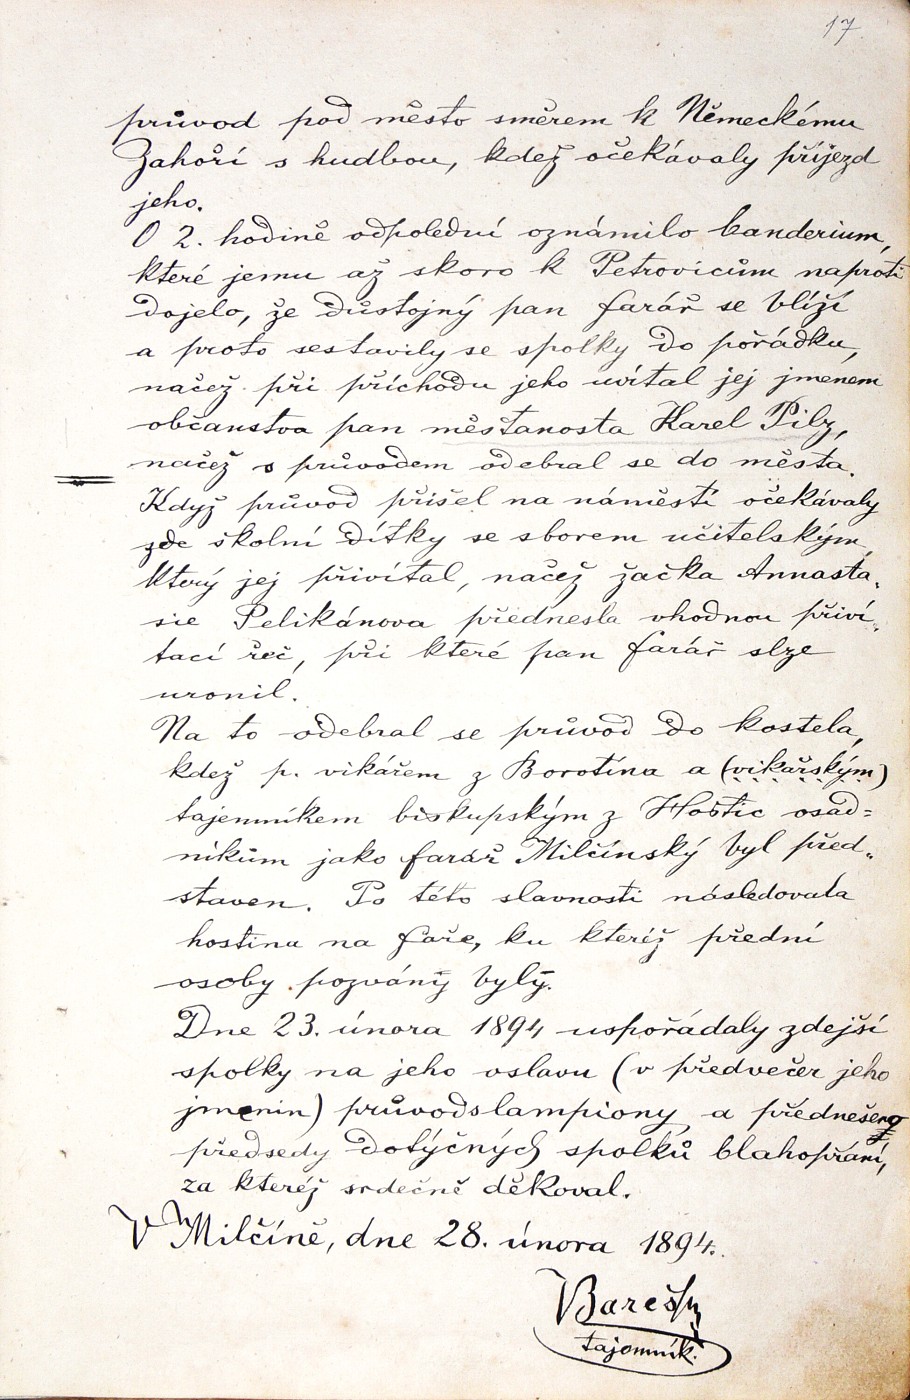 17
průvod pod město směrem k Německému
Zahoří s hudbou, kdež očekávaly příjezd
jeho.
O 2. hodině odpolední oznámilo banderium,
které jemu až skoro k Petrovicům naproti
dojelo, že důstojný pan farář se blíží
a proto sestavily se spolky do pořádku,
načež při příchodu jeho uvítal jej jmenem
občanstva pan měšťanosta Karel Pilz,
načež s průvodem odebral se do města.
Když průvod přišel na náměstí očekávaly
zde školní dítky se sborem učitelským
který jej přivítal, načež žačka Annastá-
sie Pelikánova přednesla vhodnou přiví-
tací řeč, při které pan farář slze
uronil.
Na to odebral se průvod do kostela,
kdež p. vikářem z Borotína a (vikářským)
tajemníkem biskupským z Hoštic osad=
níkům jako farář Milčínský byl před-
staven. Po této slavnosti následovala
hostina na faře, ku kteréž přední
osoby pozvány byly.
Dne 23. února 1894 uspořádaly zdejší
spolky na jeho oslavu (v předvečer jeho
jmenin) průvod s lampiony a přednešeno
předsedy dotýčných spolků blahopřání,
za kteréž srdečně děkoval.
V Milčíně, dne 28. února 1894.
Bareš
tajomník.